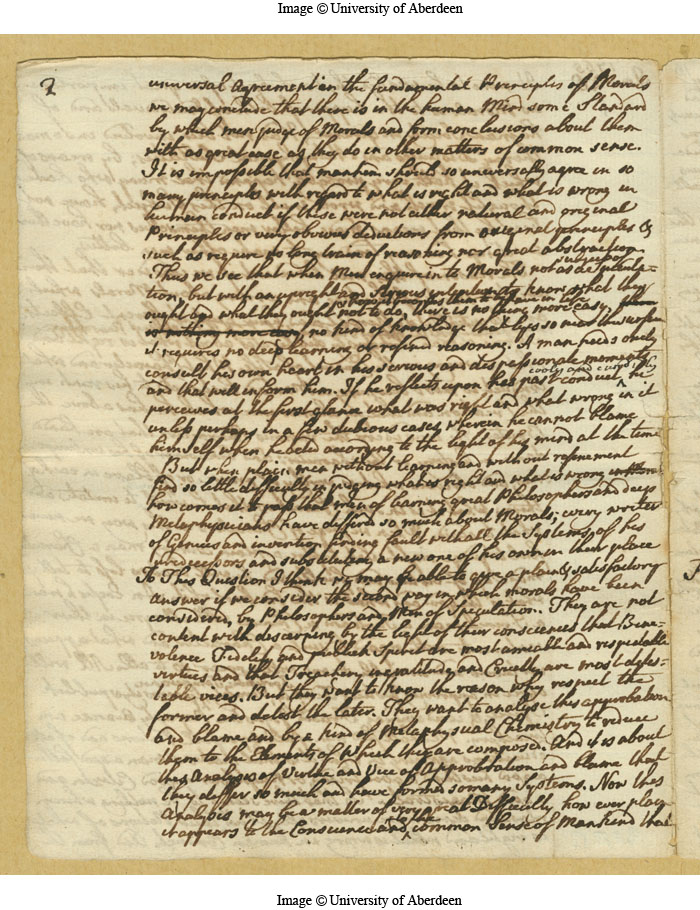 Image © University of Aberdeen
2
universal Agreement in the fundamental Principles of Morals
we may conclude that there is in the human Mind some Standard
by which men judge of Morals and form conclusions about them
with as great ease as they do in other matters of common sense.
It is impossible that mankind should so universally agree in so
many principles with regard to what is right and what is wrong in
human conduct if these were not either natural and original
Principles or very obvious deductions from original principles &
such as require no long train of reasoning nor great abstraction
Thus we see that when Men enquire into Morals not as
tion, but with an upright and Serious intention to know what they
ought & what they ought not to do, there is no thing more easy.
is nothing more easy no kind of knowledge that lyes so near the surface
it requires no deep learning or refined reasoning. A man needs onely
consult his own heart in his serious and dispassionate moments
and that will inform him. If he reflects upon his past conduct he
perceives at the first glance what was right and what wrong in it
unless perhaps in a few dubious cases wherein he cannot blame
himself when he acted according to the light of his mind at the time
But when plain men without learning and without refinement
find so little difficulty in judging what is right and what is wrong
how comes it to pass that men of learning great Philosophers and deep
Metaphysicians have differd so much about Morals; every writer
of Genius and invention finding fault with all the Systems of his
predecessors and substituting a new one of his own in their place
To This Question I think we may be able to give a plain & satisfactory
answer if we consider the second way in which morals have been
considered, by Philosophers and Men of Speculation. They are not
content with discerning by the light of their consciences that Bene-
volence Fidelity and publick Spirit are most amiable and respectable
virtues and that Treachery ingratitude and Cruelty are most detes-
table vices. But they want to know the reason why respect the
former and detest the later. They want to analyse this approbation
and blame and by a kind of Metaphysical Chemistry to reduce
them to the Elements of which they are composed. And it is about
this Analysis of Virtue and Vice of Approbation and blame that
they differ so much and have formed so many Systems. Now this
Analysis may be a matter of very great Difficulty how ever plain
it appears to the Conscience and to the common Sense of Mankind that
Image © University of Aberdeen